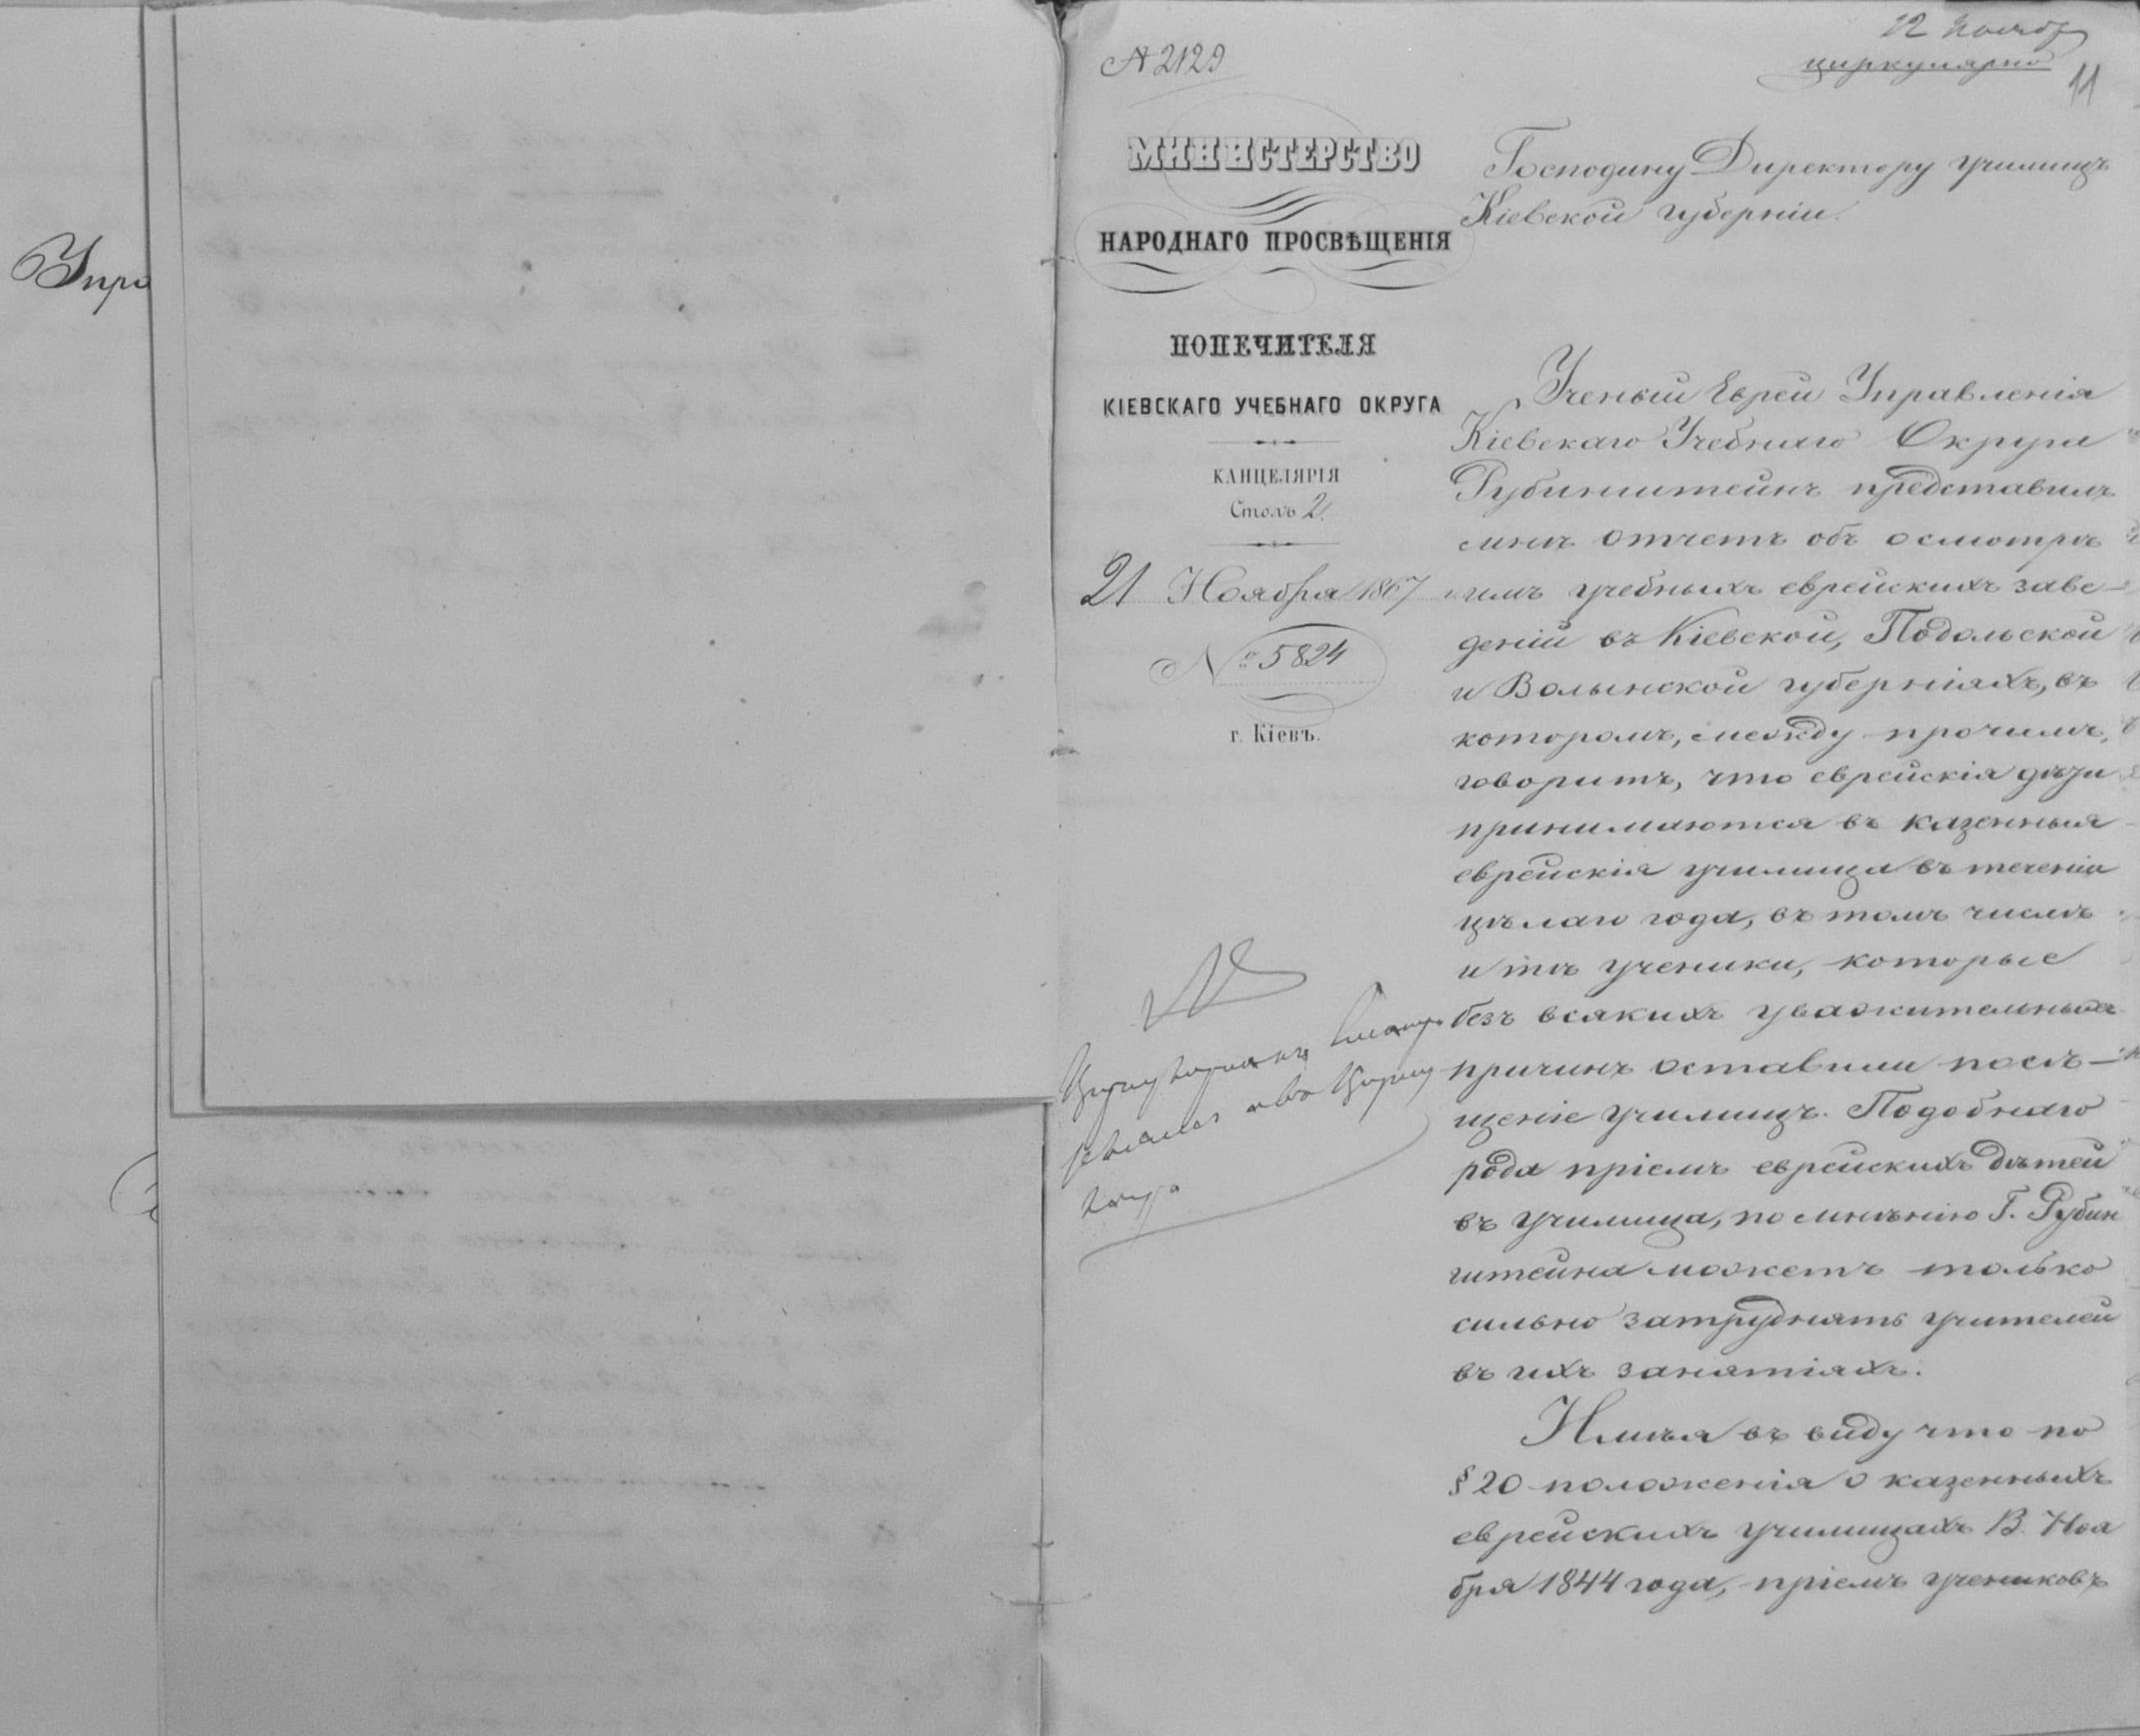 Упро
А 2129
22 Ноябр
циркулярно
11
МИНИСТЕРСТВО
НАРОДНАГО ПРОСВѢЩЕНІЯ
ПОПЕЧИТЕЛЯ
КІЕВСКАГО УЧЕБНАГО ОКРУГА
КАНЦЕЛЯРІЯ
Столъ 2.
21 Ноября 1867
№ 5824
г. Кіевъ.
Господину Директору училищъ
Кіевской губерніи.
Ученый Еврей Управленія
Кіевскаго Учебнаго Округа
Рубинштейнъ представилъ
мнѣ отчетъ объ осмотрѣ
имъ учебныхъ еврейскихъ заве-
деній въ Кіевской, Подольской
и Волынской губерніяхъ, въ
которомъ, между прочимъ,
говоритъ, что еврейскія дѣти
принимаются въ казенныя
еврейскія училища въ теченіи
цѣлаго года, въ томъ числѣ
и тѣ ученики, которые
безъ всякихъ уважительныхъ
причинъ оставили посѣ-
щеніе училищъ. Подобнаго
рода пріемъ еврейскихъ дѣтей
въ училища, по мнѣнію Г. Рубин
штейна можетъ только
сильно затруднять учителей
въ ихъ занятіяхъ.
Имѣя въ виду что по
§ 20 положенія о казенныхъ
еврейскихъ училищахъ 13 Ноя
бря 1844 года, пріемъ учениковъ